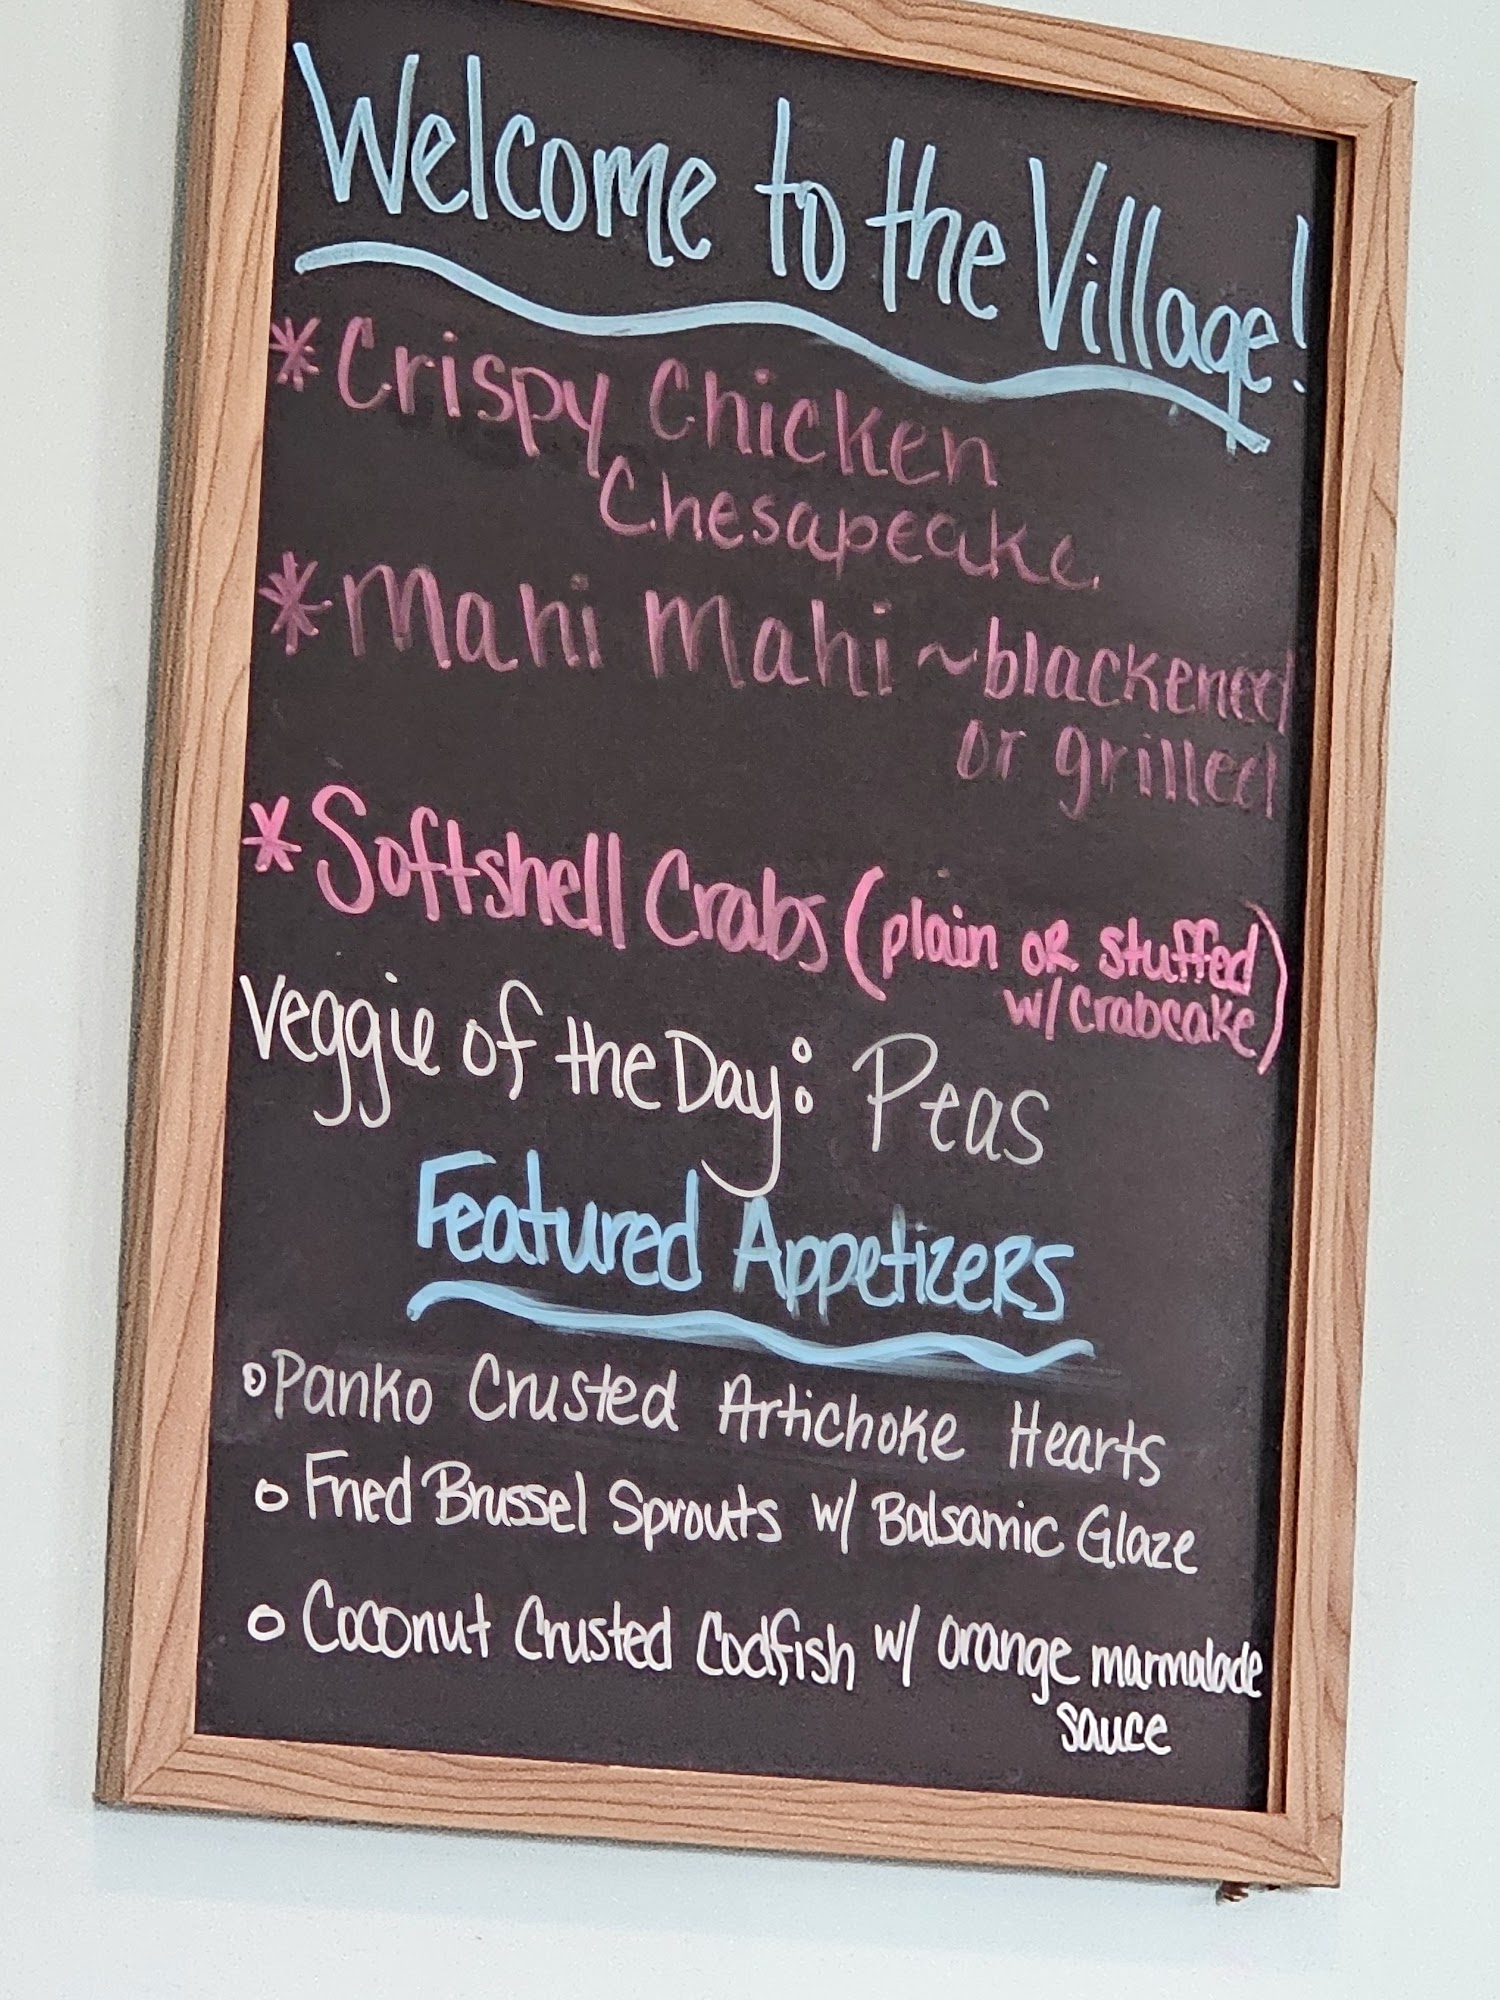 Welcome to the Village!
* Crispy Chicken
Chesapeake
* Mahi Mahi ~ blackened
or grilled
* Softshell Crabs (plain or stuffed
w/ crabcake)
Veggie of the Day: Peas
Featured Appetizers
o Panko Crusted Artichoke Hearts
o Fried Brussel Sprouts w/ Balsamic Glaze
o Coconut Crusted Codfish w/ orange marmalade
sauce